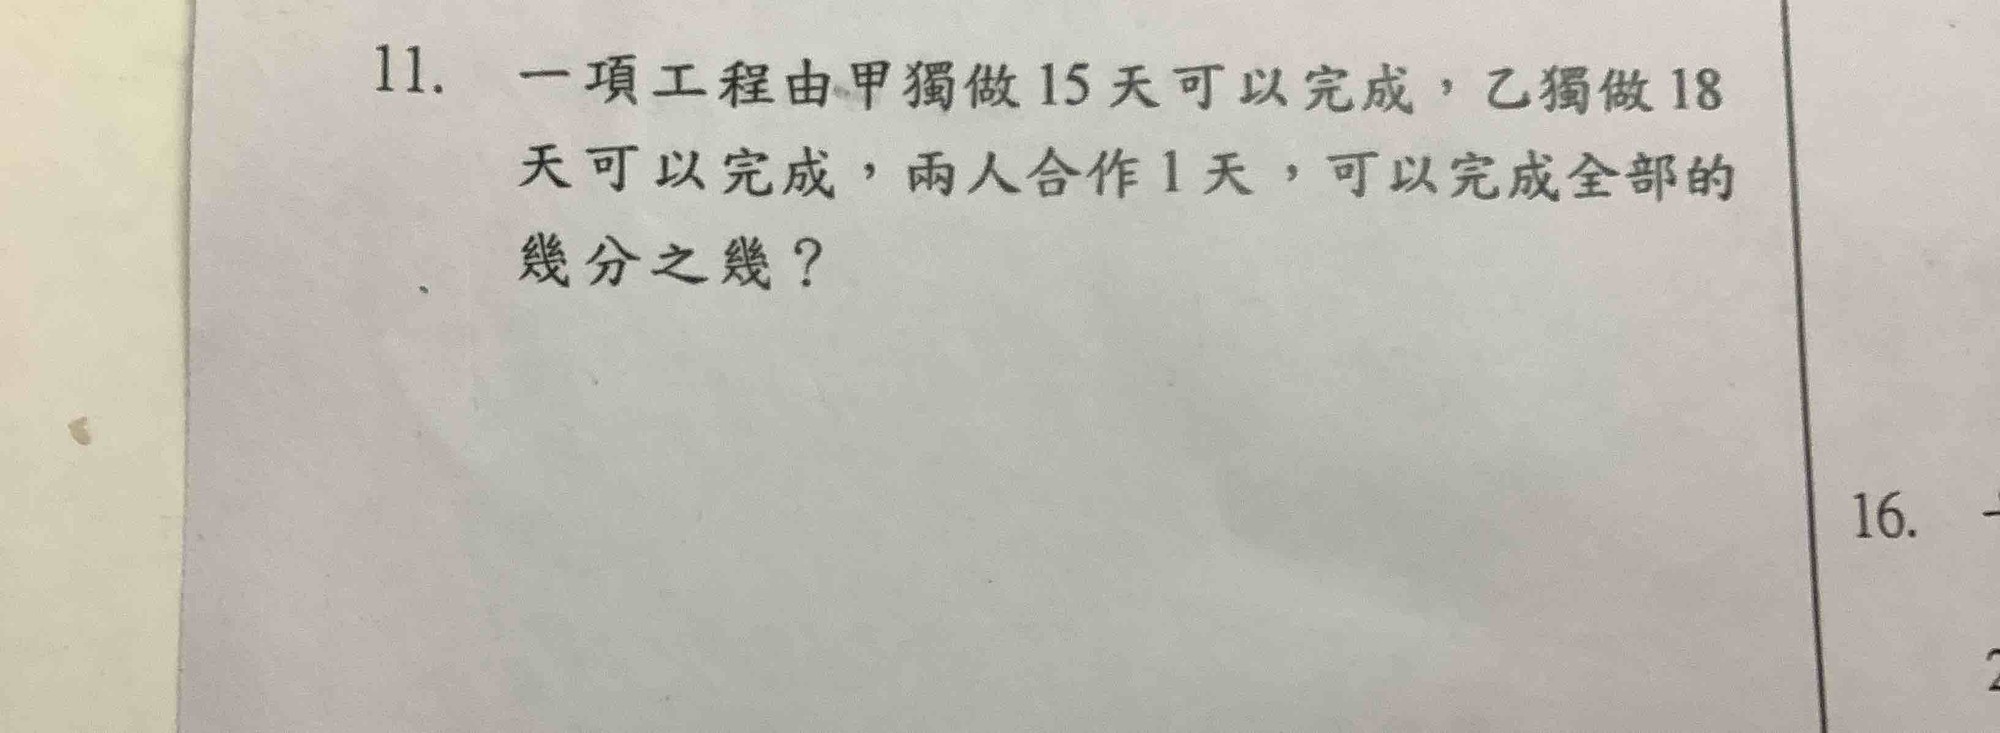 11. 一項工程由甲獨做15天可以完成，乙獨做18
天可以完成，兩人合作1天，可以完成全部的
幾分之幾？
16.